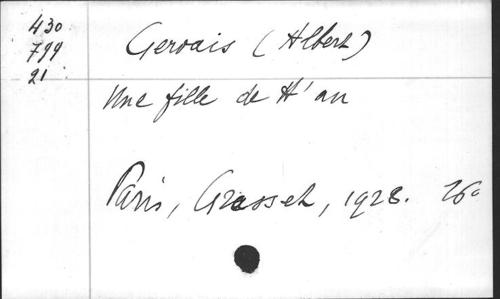 430
799
21
Gervais (Albert)
Une fille de H'an
Paris, Grasset, 1928. 16°